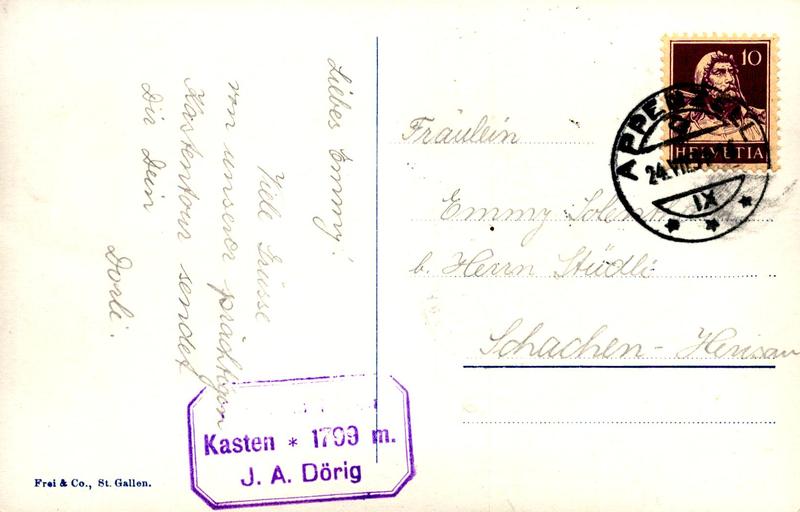 Liebes Emmy!
Viele Grüsse
von unserer prächtigen
Kastentour sendet
Dir Dein
Dorli.
10
HELVETIA
APPENZELL
24.VII.
IX
Fräulein
Emmy
b. Herrn Stüdli
Schachen-Herisau
Kasten * 1799 m.
J. A. Dörig
Frei & Co., St. Gallen.